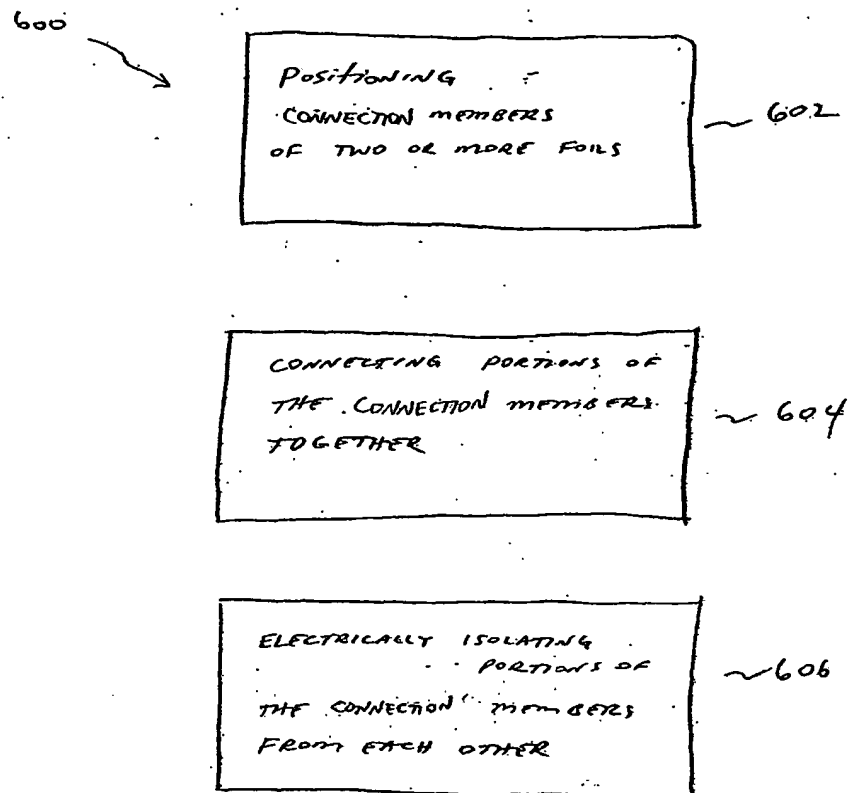 600
Positioning
CONNECTION members
OF TWO OR MORE FOILS
602
CONNECTING PORTIONS OF
THE CONNECTION members
TOGETHER
604
ELECTRICALLY ISOLATING
PORTIONS OF
THE CONNECTION members
FROM EACH OTHER
606